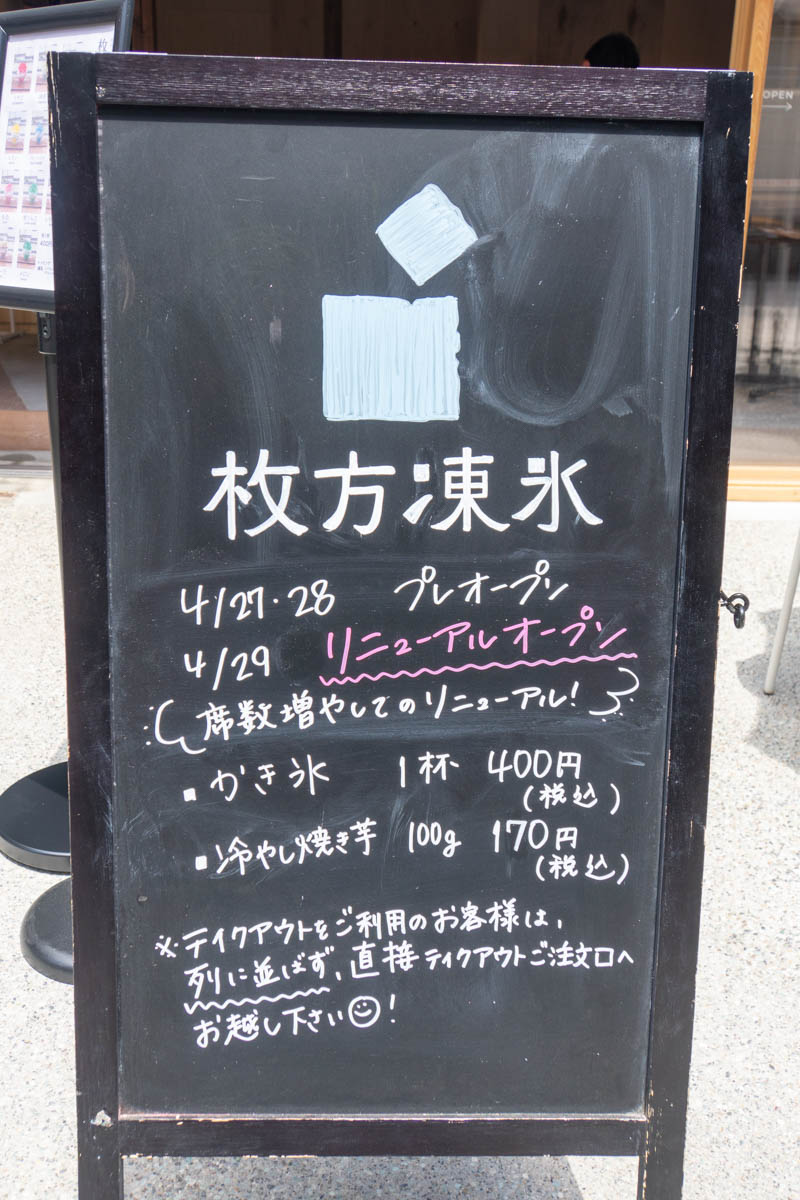 枚方凍氷
4/27・28 プレオープン
4/29 リニューアルオープン
席数増やしてのリニューアル!
▪かき氷 1杯 400円
(税込)
▪冷やし焼き芋 100g 170円
(税込)
※テイクアウトをご利用のお客様は、
列に並ばず、直接テイクアウトご注文口へ
お越し下さい☺!
OPEN
→
枚